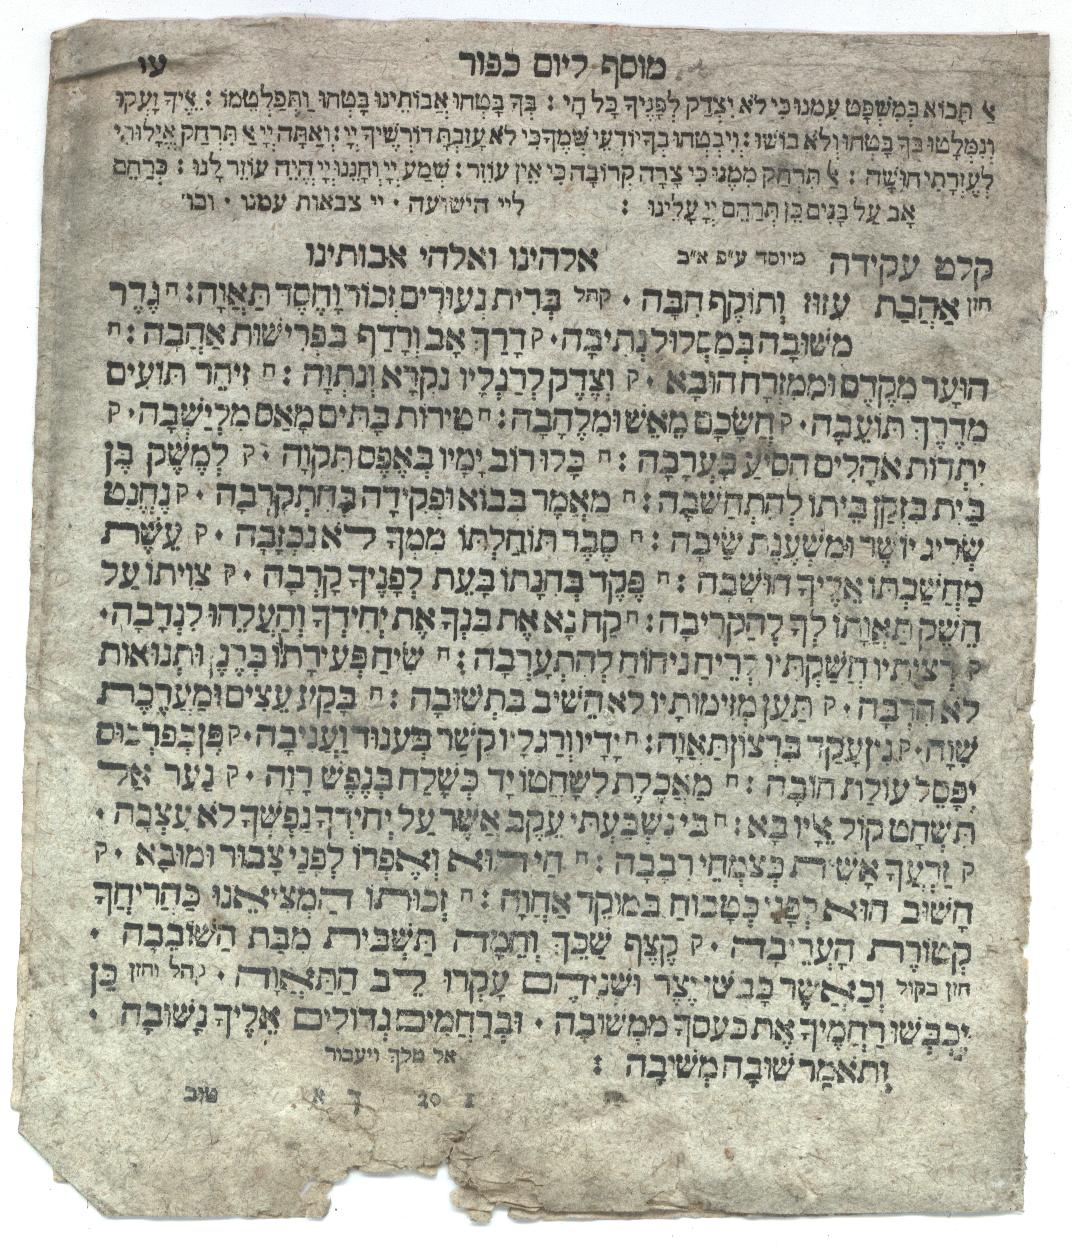 מוסף ליום כפור עו
אל תבוא במשפט עמנו כי לא יצדק לפניך כל חי : בך בטחו אבותינו בטחו ותפלטמו : אליך זעקו
ונמלטו בך בטחו ולא בושו : ויבטחו בך יודעי שמך כי לא עזבת דורשיך יי : ואתה יי אל תרחק אילותי
לעזרתי חושה : אל תרחק ממנו כי צרה קרובה כי אין עוזר : שמע יי וחננו יי היה עוזר לנו : כרחם
אב על בנים כן תרחם יי עלינו : ליי הישועה · יי צבאות עמנו · וכו׳
קלט עקידה מיוסד ע״פ א״ב אלהינו ואלהי אבותינו
חזן אהבת עזוז ותוקף חבה · קהל ברית נעורים זכור וחסד תאוה : ח גדר
משובה במסלול נתיבה · ק דרך אב ורדף בפרישות אהבה : ח
הוער מקדם וממזרח הובא · ק וצדק לרגליו נקרא ונתוה : ח זיהר תועים
מדרך תועבה · ק חשכם מאש ומלהבה : ח טירות בתים מאס מלישבה · ק
יתדות אהלים הסיע בערבה : ח כלו רוב ימיו באפס תקוה · ק למשק בן
בית בזקן ביתו להתחשבה : ח מאמר בבוא ופקידה בחתקרבה · ק נחנט
שריג יושר ומשענת שיבה : ח סבר תוחלתו ממך לא נכזבה · ק עשת
מחשבתו אליך חושבה : ח פקד בהנתו בעת לפניך קרבה · ק צויתו על
חשק תאותו לך להקריבה : ח קח נא את בנך את יחידך והעלהו לנדבה ·
ק רציתיו חשקתיו לריח ניחוח להתערבה : ח שיח פעירתו ברנן ותנואות
לא הרבה · ק תען מזימותיו לא השיב בתשובה : ח בקע עצים ומערכת
שוה · ק נין עקד ברצון תאוה : ח ידיו ורגליו קשר בענוד ועניבה · ק פן בפרכוס
יפסל עולת חובה : ח מאכלת לשחטו יד כשלח בנפש רוה · ק נער אל
תשחט קול אליו בא : ח בי נשבעתי עקב אשר על יחידך נפשך לא עצבה ·
ק זרעך אשית כצמחי רבבה : ח היהוא ואפרו לפני צבור ומובא · ק
חשוב הוא לפני כטבוח במוקד אחוה : ח זכותו המציאנו כהריחך
קטורת העריבה · ק קצף שכך וחמה תשבית מבת השובבה ·
חזן בקול וכאשר כבשו יצר ושניהם עקרו לב התאוה · קהל וחזן כן
יכבשו רחמיך את כעסך ממשובה · וברחמים גדולים אליך נשובה ·
ותאמר שובה משובה : אל מלך ויעבור
20 ך א טוב